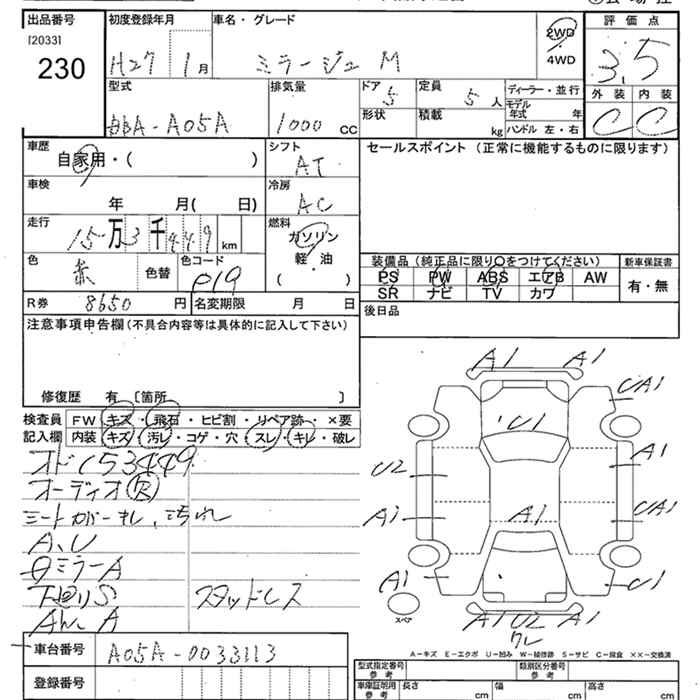 出品番号 初度登録年月 車名・グレード 評価点
[2033] 2WD
230 H27 1月 ミラージュ M 4WD 3.5
型式 排気量 ドア 定員 ディーラー・並行 外装 内装
DBA-A05A 1000 CC 5 5人 モデル年式 年 C C
形状 積載 kg ハンドル 左・右
車歴 シフト セールスポイント (正常に機能するものに限ります)
自家用・( ) AT
車検 冷房
年 月( 日) AC
走行 燃料
15万3千449km ガソリン
軽・油
( )
色 色替 色コード 装備品 (純正品に限り○をつけてください) 新車保証書
紫 P19 PS PW ABS エアB AW 有・無
SR ナビ TV カワ
R券 8650円 名変期限 月 日 後日品
注意事項申告欄 (不具合内容等は具体的に記入して下さい)
修復歴 有 [箇所 ]
検査員 FW キズ・飛石・ヒビ割・リペア跡・×要
記入欄 内装 キズ・汚レ・コゲ・穴・スレ・キレ・破レ
オド153449
オーディオ欠
シートカバーキレ、ヨゴレ
A、U
ミラーA
下廻りS スタッドレス
A
A1 A1
UA1
U1
U2 A1
A1 A1 UA1
A1 U1
スペア
A1 U2 A1
ワレ
A-キズ E-エクボ U-凹み W-補修跡 S-サビ C-腐食 ××-交換済
車台番号 A05A-0033113
登録番号
型式指定番号 参考 類別区分番号 参考
車庫証明用 参考 長さ cm 幅 cm 高さ cm